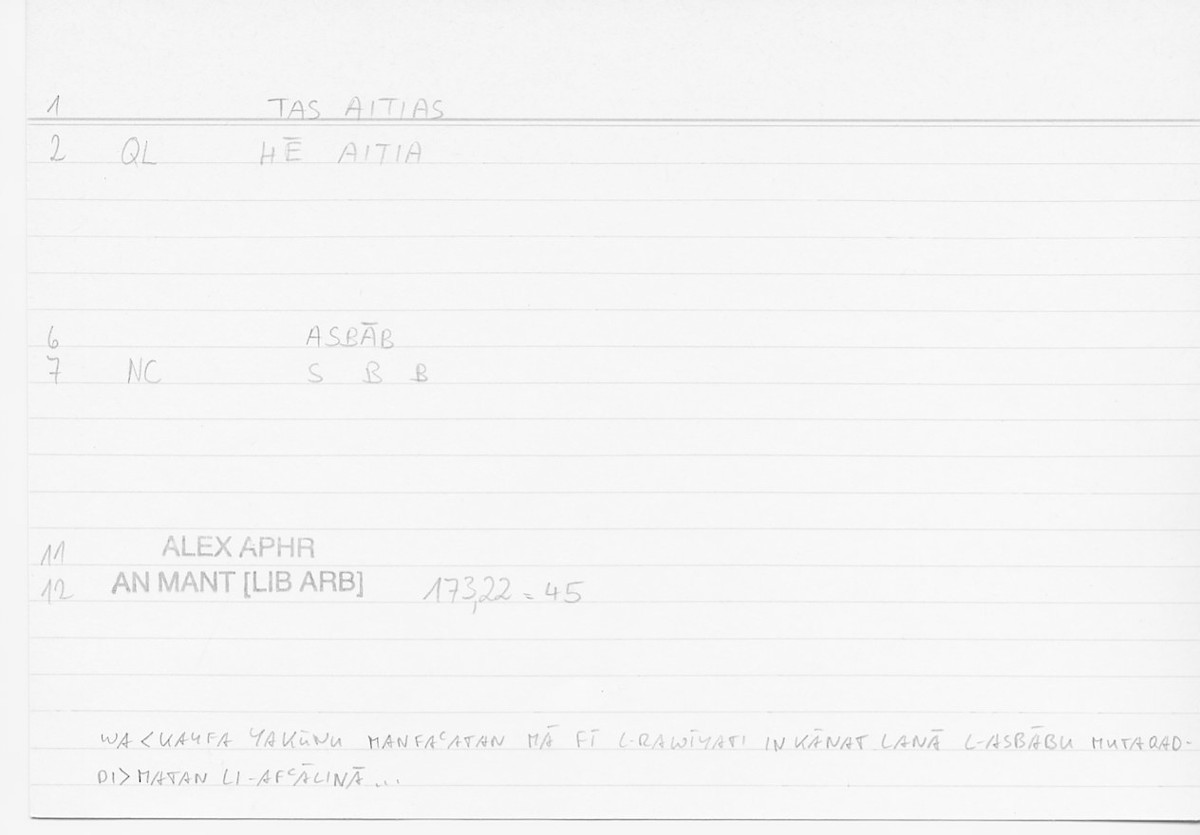 1 TAS AITIAS
2 QL HĒ AITIA
6 ASBĀB
7 NC S B B
11 ALEX APHR
12 AN MANT [LIB ARB] 173,22 = 45
WA<KAYFA YAKŪNU MANFAᶜATAN MĀ FĪ L-RAWĪYATI IN KĀNAT LANĀ L-ASBĀBU MUTAQAD-
DI>MATAN LI-AFᶜĀLINĀ...